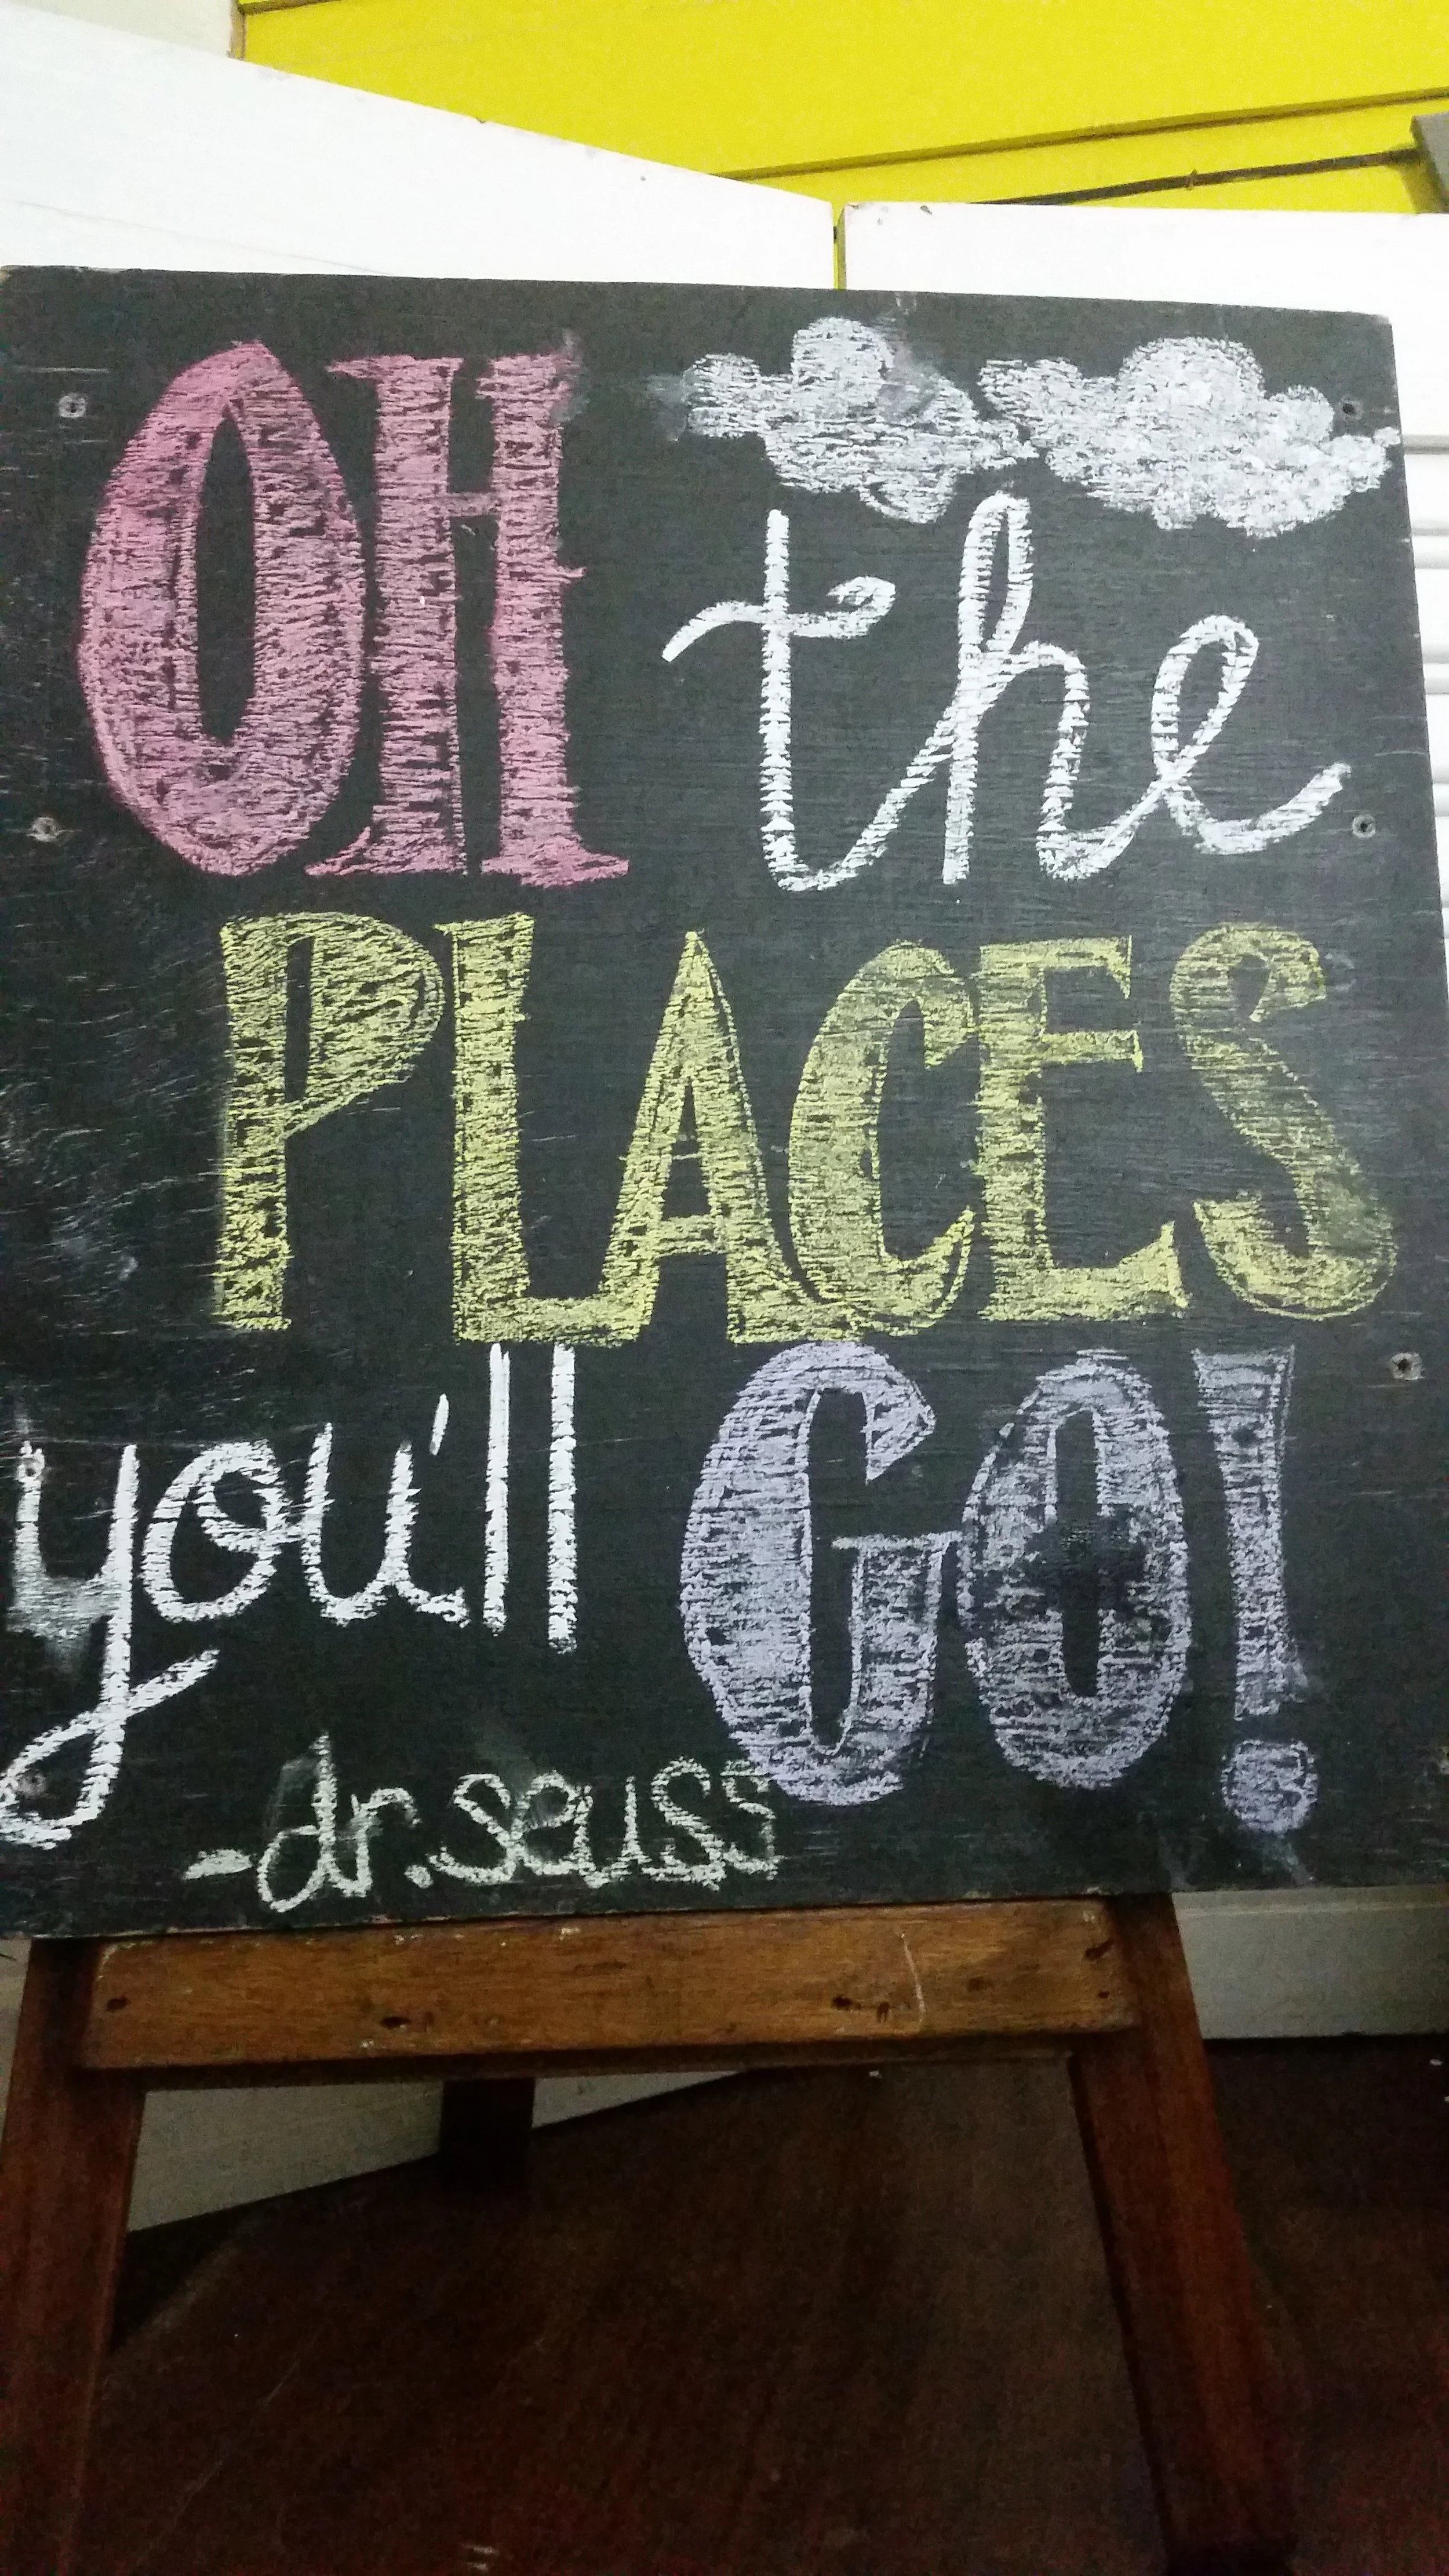 OH the
PLACES
you'll GO!
-dr.seuss